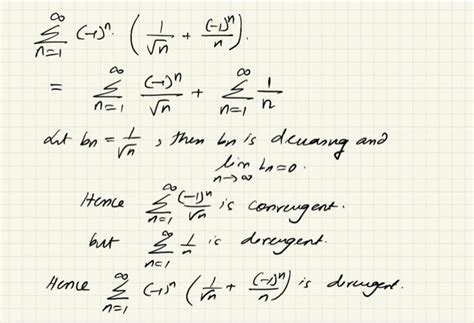 ∞∑n=1 (-1)^n · (1/√n + (-1)^n/n).
= ∞∑n=1 (-1)^n/√n + ∞∑n=1 1/n
Let bn = 1/√n, then bn is decreasing and
lim n→∞ bn = 0.
Hence ∞∑n=1 (-1)^n/√n is convergent.
but ∞∑n=1 1/n is divergent.
Hence ∞∑n=1 (-1)^n (1/√n + (-1)^n/n) is divergent.